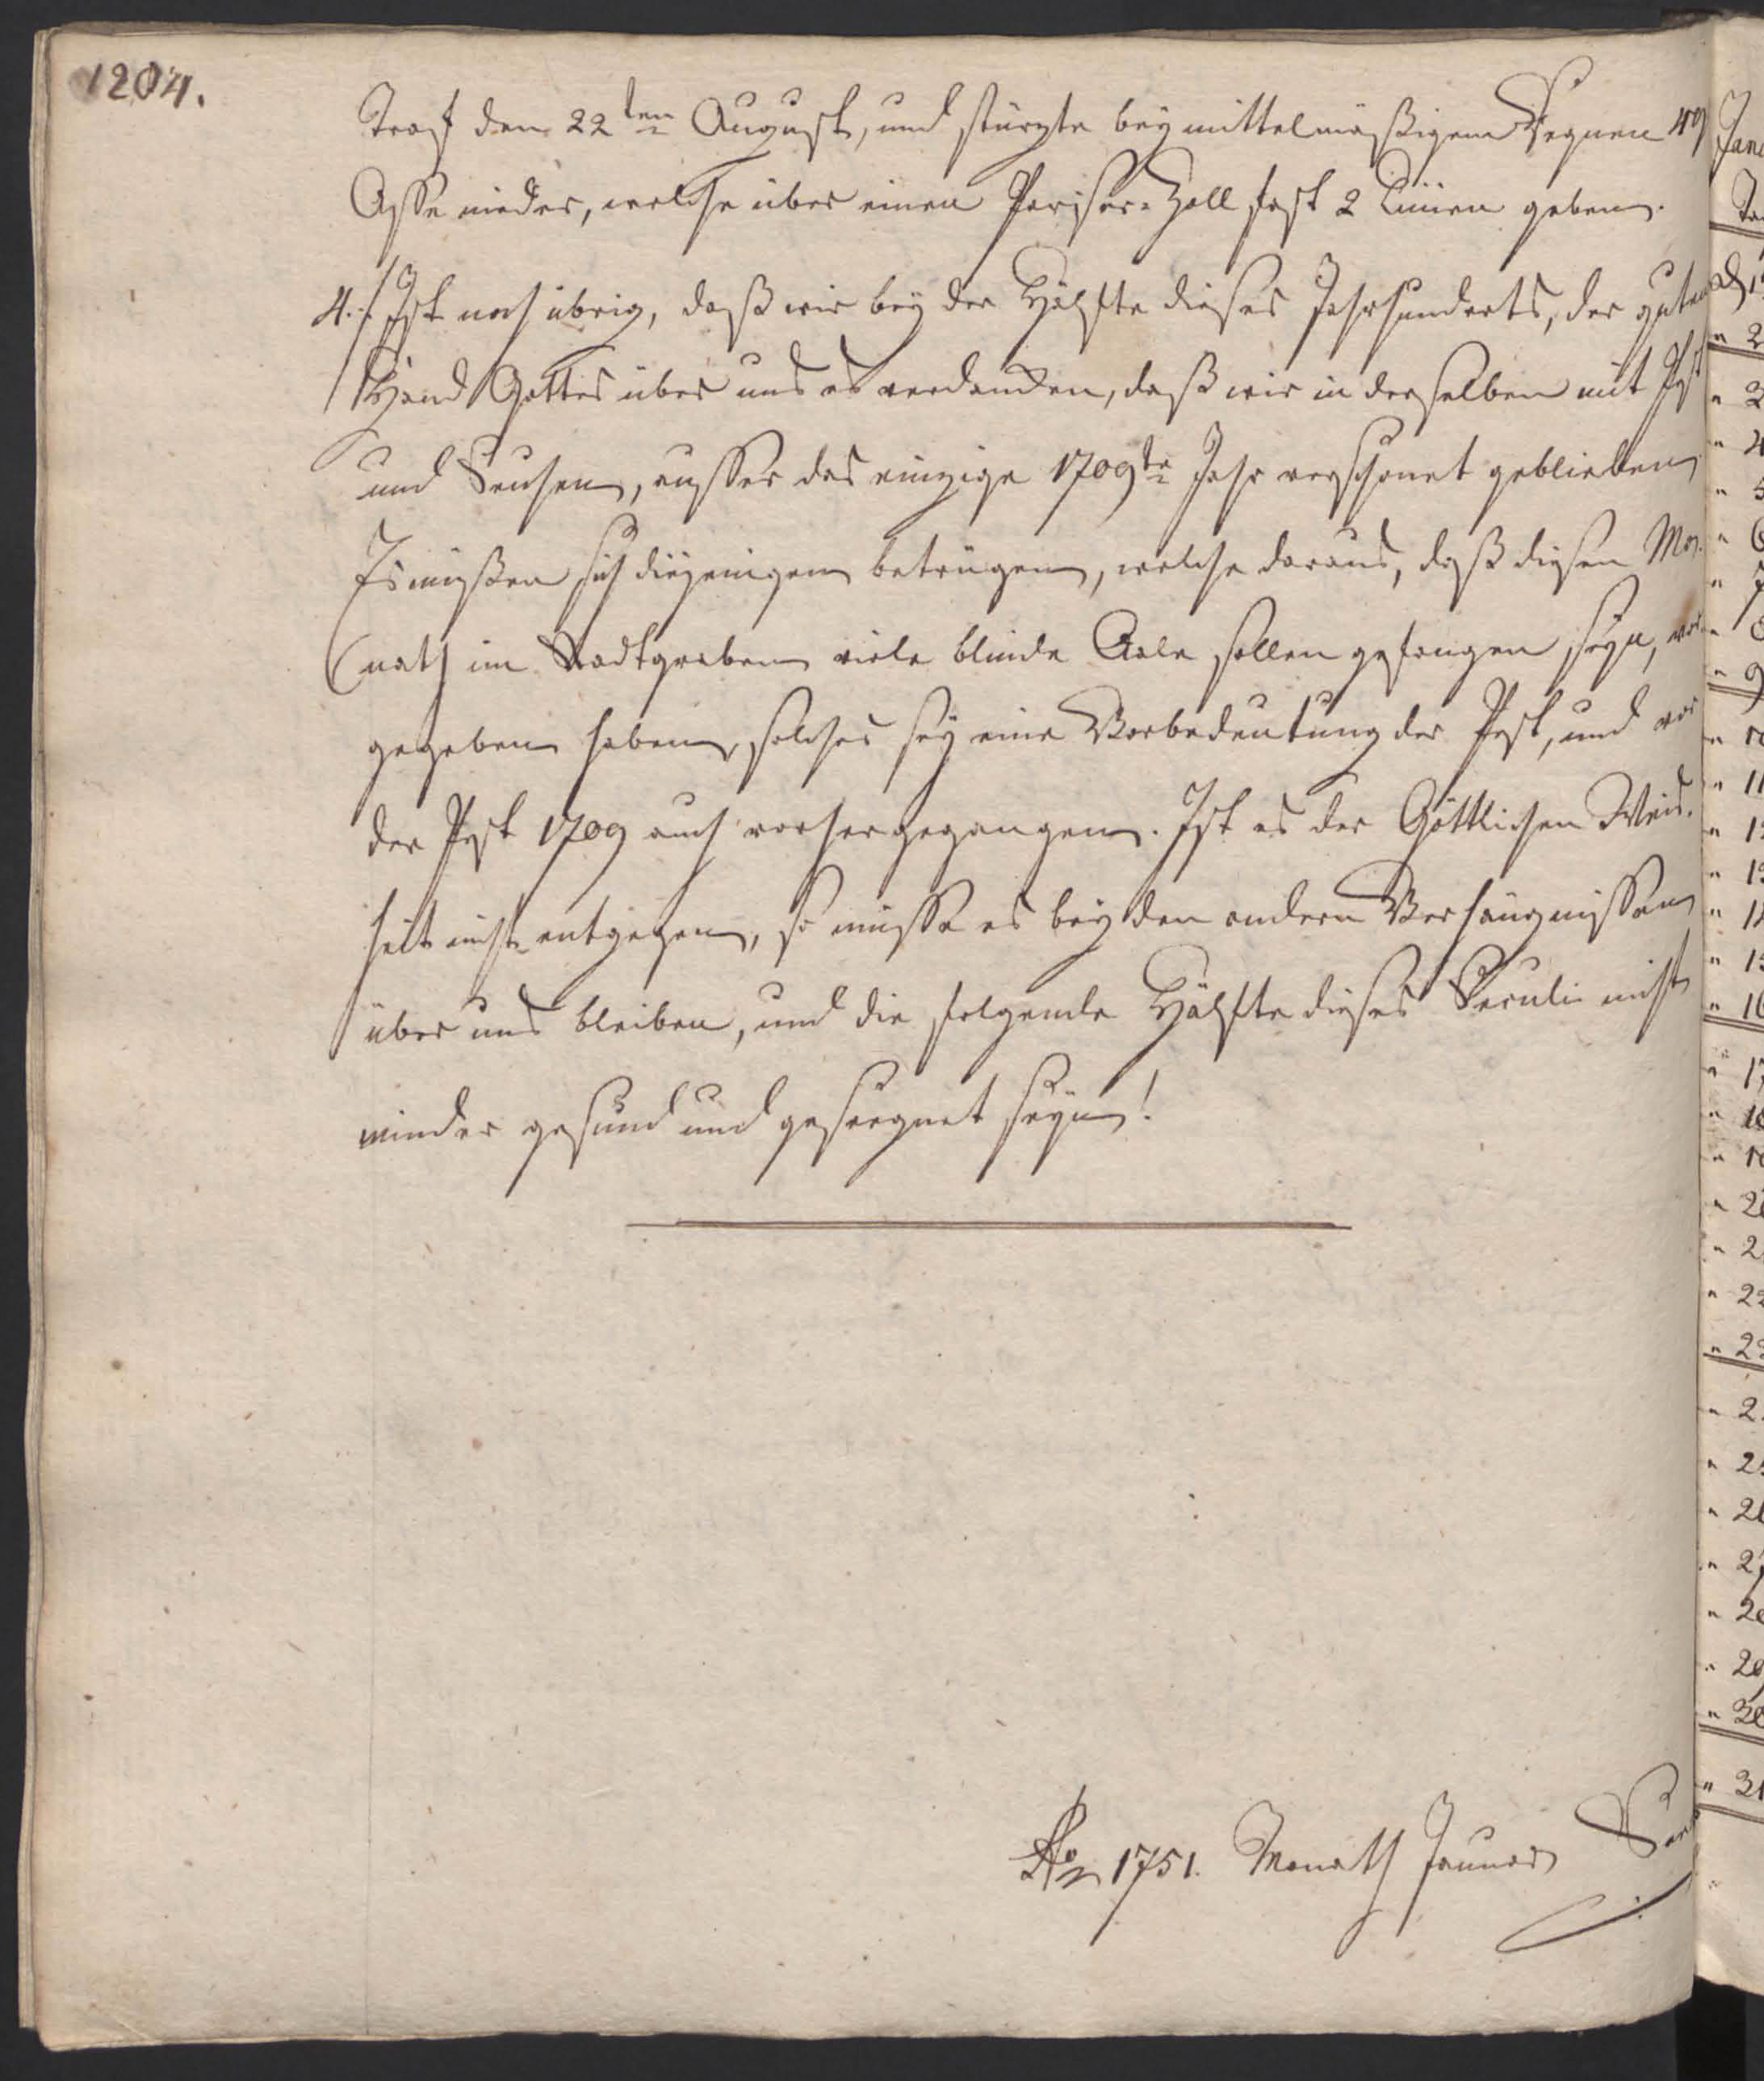 1204.
traf den 22ten August, und stürzte bey mittelmäßigem Regnen 49
Asse nieder, welche über einen Pariser-Zoll fast 2 Linien geben.
4./ Ist noch übrig, daß wir bey der Hälfte dieses Jahrhunderts, der guten
Hand Gottes über uns es verdanken, daß wir in derselben mit Pest
und Seuchen, ausser das einzige 1709te Jahr verschonet geblieben
Es müßen sich diejenigen betrügen, welche daraus, daß diesen Mo-
nath im Stadtgraben viele blinde Aale sollen gefangen seyn, vor-
gegeben haben, solches sey eine Vorbedeutung der Pest, und vor
der Pest 1709 auch vorhergegangen. Ist es der Göttlichen Weis-
heit nicht entgegen, so müsse es bey den andern Verhängnissen
über uns bleiben, und die folgende Hälfte dieses Seculi nicht
minder gesund und gesegnet seyn!
Ao 1751. Monath Januar